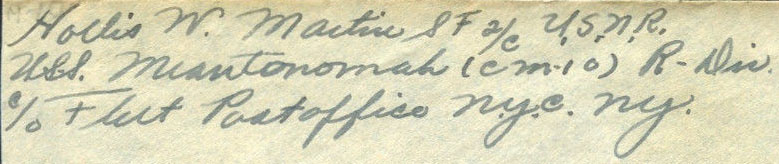 Hollis W. Martin S F 2/c U.S.N.R.
U.S.S. Miantonomah (cm-10) R-Div.
c/o Fleet Postoffice N.Y.C. N.Y.